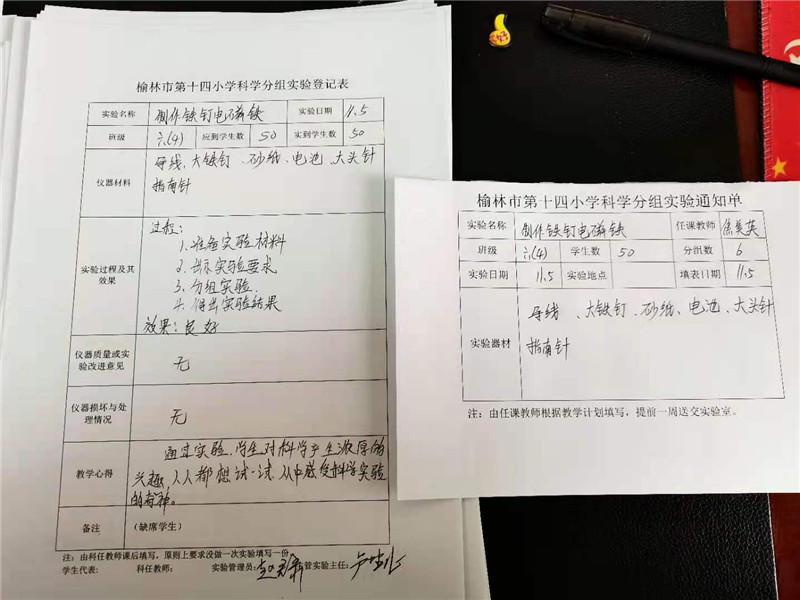 榆林市第十四小学科学分组实验登记表
实验名称 制作铁钉电磁铁 实验日期 11.5
班级 六(4) 应到学生数 50 实到学生数 50
仪器材料
导线、大铁钉、砂纸、电池、大头针
指南针
实验过程及其
效果
过程:
1.准备实验材料
2.出示实验要求
3.分组实验
4.得出实验结果
效果:良好
仪器质量或实
验改进意见
无
仪器损坏与处
理情况
无
教学心得
通过实验,学生对科学产生浓厚的
兴趣,人人都想试一试,从中感受科学实验
的
备注 (缺席学生)
注:由科任教师课后填写,原则上要求没做一次实验填写一份
学生代表: 科任教师: 实验管理员: 管实验主任:
榆林市第十四小学科学分组实验通知单
实验名称 制作铁钉电磁铁 任课教师
班级 六(4) 学生数 50 分组数 6
实验日期 11.5 实验地点 填表日期 11.5
实验器材
导线、大铁钉、砂纸、电池、大头针
指南针
注:由任课教师根据教学计划填写,提前一周送交实验室。